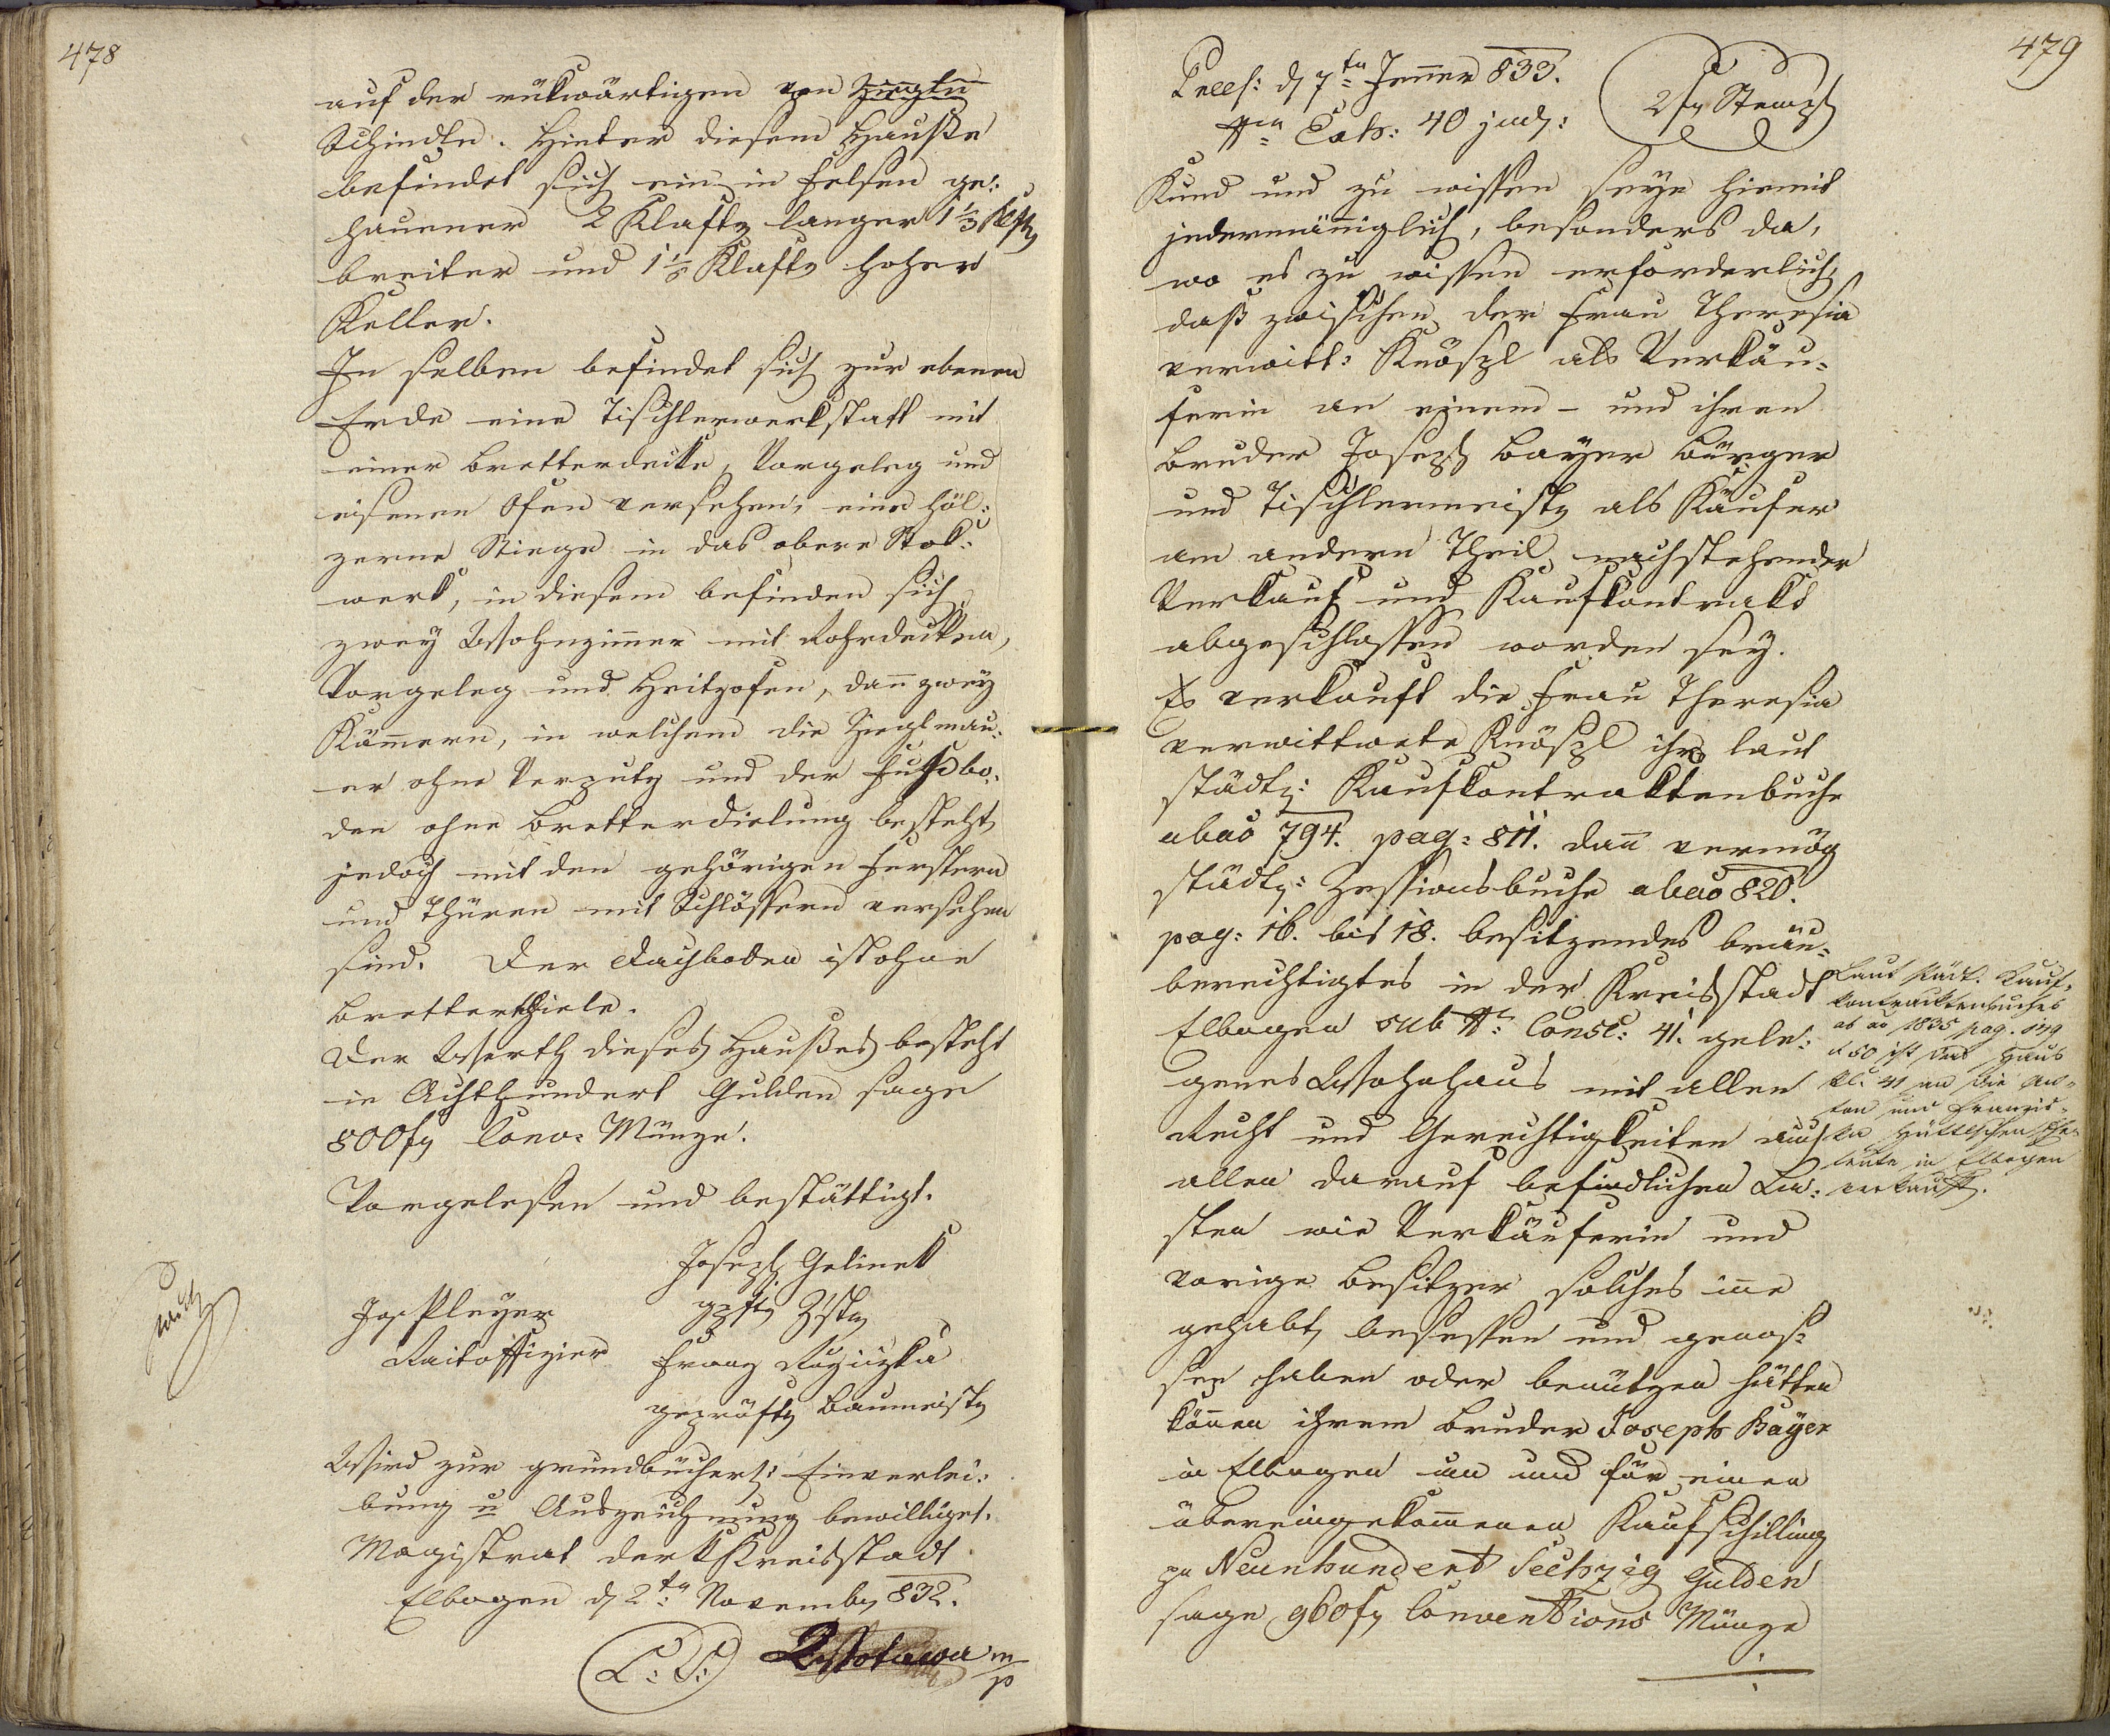 478
auf der rükwärtigen von Ziegln
Schindln. Hinter diesem Hauße
befindet sich ein in Felsen ge:
hauener 2 Klaftr langer 1 1/3 Klftr
breiter und 1 1/3 Klaftr hoher
Keller.
In selben befindet sich zur ebenen
Erde eine Tischlerwerkstatt mit
einer Bretterdecke, Vorgeleg und
eisenen Ofen versehen, eine höl:
zerne Stiege in das obere Stok:
werk, in diesem befinden sich
zwey Wohnzimmer mit Rohrdecken,
Vorgeleg und Heitzofen, dann zwey
Kammern, in welchem die Zieglmau:
er ohne Verputz und der Fußbo:
den ohne Bretterdielung besteht,
jedoch mit den gehörigen Fenstern
und Thüren mit Schlössern versehen
sind. Der Dachboden ist ohne
Bretterthiele.
Der Werth dieses Haußes besteht
in Achthundert Gulden sage
800 fr Conv: Münze.
Vorgelesen und bestättigt.
Joseph Gelinek
Jos. Pleyer
Raitoffizier
Franz Ruziczka
geprüfter Baumeistr
Wird zur grundbücherl: Einverlei:
bung u Auszeichnung bewilliget.
Magistrat der k Kreisstadt
Elbogen d 2tn Novembr 832.
L: S: Wottawa m/p
479
Prees: d 7tn Jenner 833.
Nro Exh: 40 jud:
2 fr Stempl
Kund und zu wissen seye hiemit
jedermänniglich, besonders da,
wo es zu wissen erforderlich,
daß zwischen der Frau Theresia
verwitt: Knößl als Verkäu:
ferin an einem – und ihren
Bruder Joseph Bayer Bürger
und Tischlermeistr als Käufer
am andern Theil nachstehender
Verkauf und Kaufkontrakt
abgeschlossen worden sey.
Es verkauft die Frau Theresia
verwittwete Knößl ihr laut
städtl: Kaufkontraktenbuche
ab ao 794. pag: 811. dann vermög
städtl: Zessionsbuche ab ao 820.
pag: 16. bis 18. besitzendes bräu:
berechtigtes in der Kreisstadt
Elbogen sub No: Consc: 41. gele:
genes Wohnhaus mit allen
Recht und Gerechtigkeiten auch
allen darauf befindlichen La:
sten wie Verkäuferin und
vorige Besitzer solches inne
gehabt, besessen und genos:
sen haben oder benützen hätten
können ihrem Bruder Joseph Bayer
in Elbogen um und für einen
übereingekommenen Kaufschilling
pr Neunhundert Sechzig Gulden
sage 960 fr Conventions Münze
Laut städt. Kauf:
kontracktenbuches
ab ao 1835 pag. 549
d 50 ist das Haus
No. 41 an die An:
ton und Franzis:
ka Hüttlschen Ehe:
leute in Elbogen
verkauft.